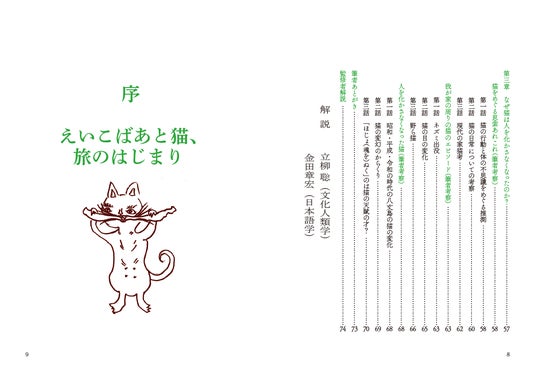 第三章 なぜ猫は人を化かさなくなったのか? 57
猫をめぐる見聞あれ・これ(筆者考察) 58
第一話 猫の行動と体の不思議をめぐる推測 58
第二話 猫の日常についての考察 60
第三話 現代の家猫考 62
我が家の居つの猫のエピソード(筆者考察) 63
第一話 ネズミ出役 63
第二話 猫の目の変化 65
第三話 野ら猫 66
人を化かさなくなった猫(筆者考察) 68
第一話 昭和・平成・令和の時代の八丈島の猫の変化 68
第二話 猫の変幻のからくり 69
第三話 「ほしょえ魂をぬく」のは猫の天賦の才? 70
筆者あとがき 73
監修者解説 74
解説 立柳 聡(文化人類学)
金田章宏(日本語学)
8
序
えいこばあと猫、
旅のはじまり
9